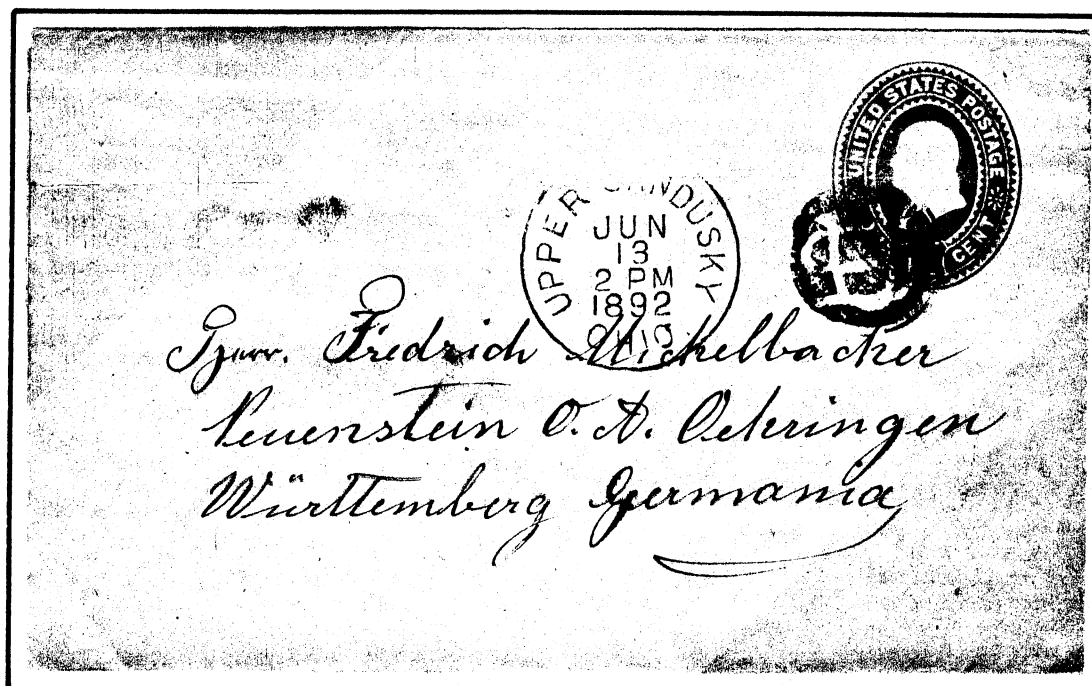 UNITED STATES POSTAGE
CENT
UPPER SANDUSKY
JUN
13
2 PM
1892
OHIO
Herr. Friedrich Mickelbacker
Neuenstein O. A. Oehringen
Württemberg Germania